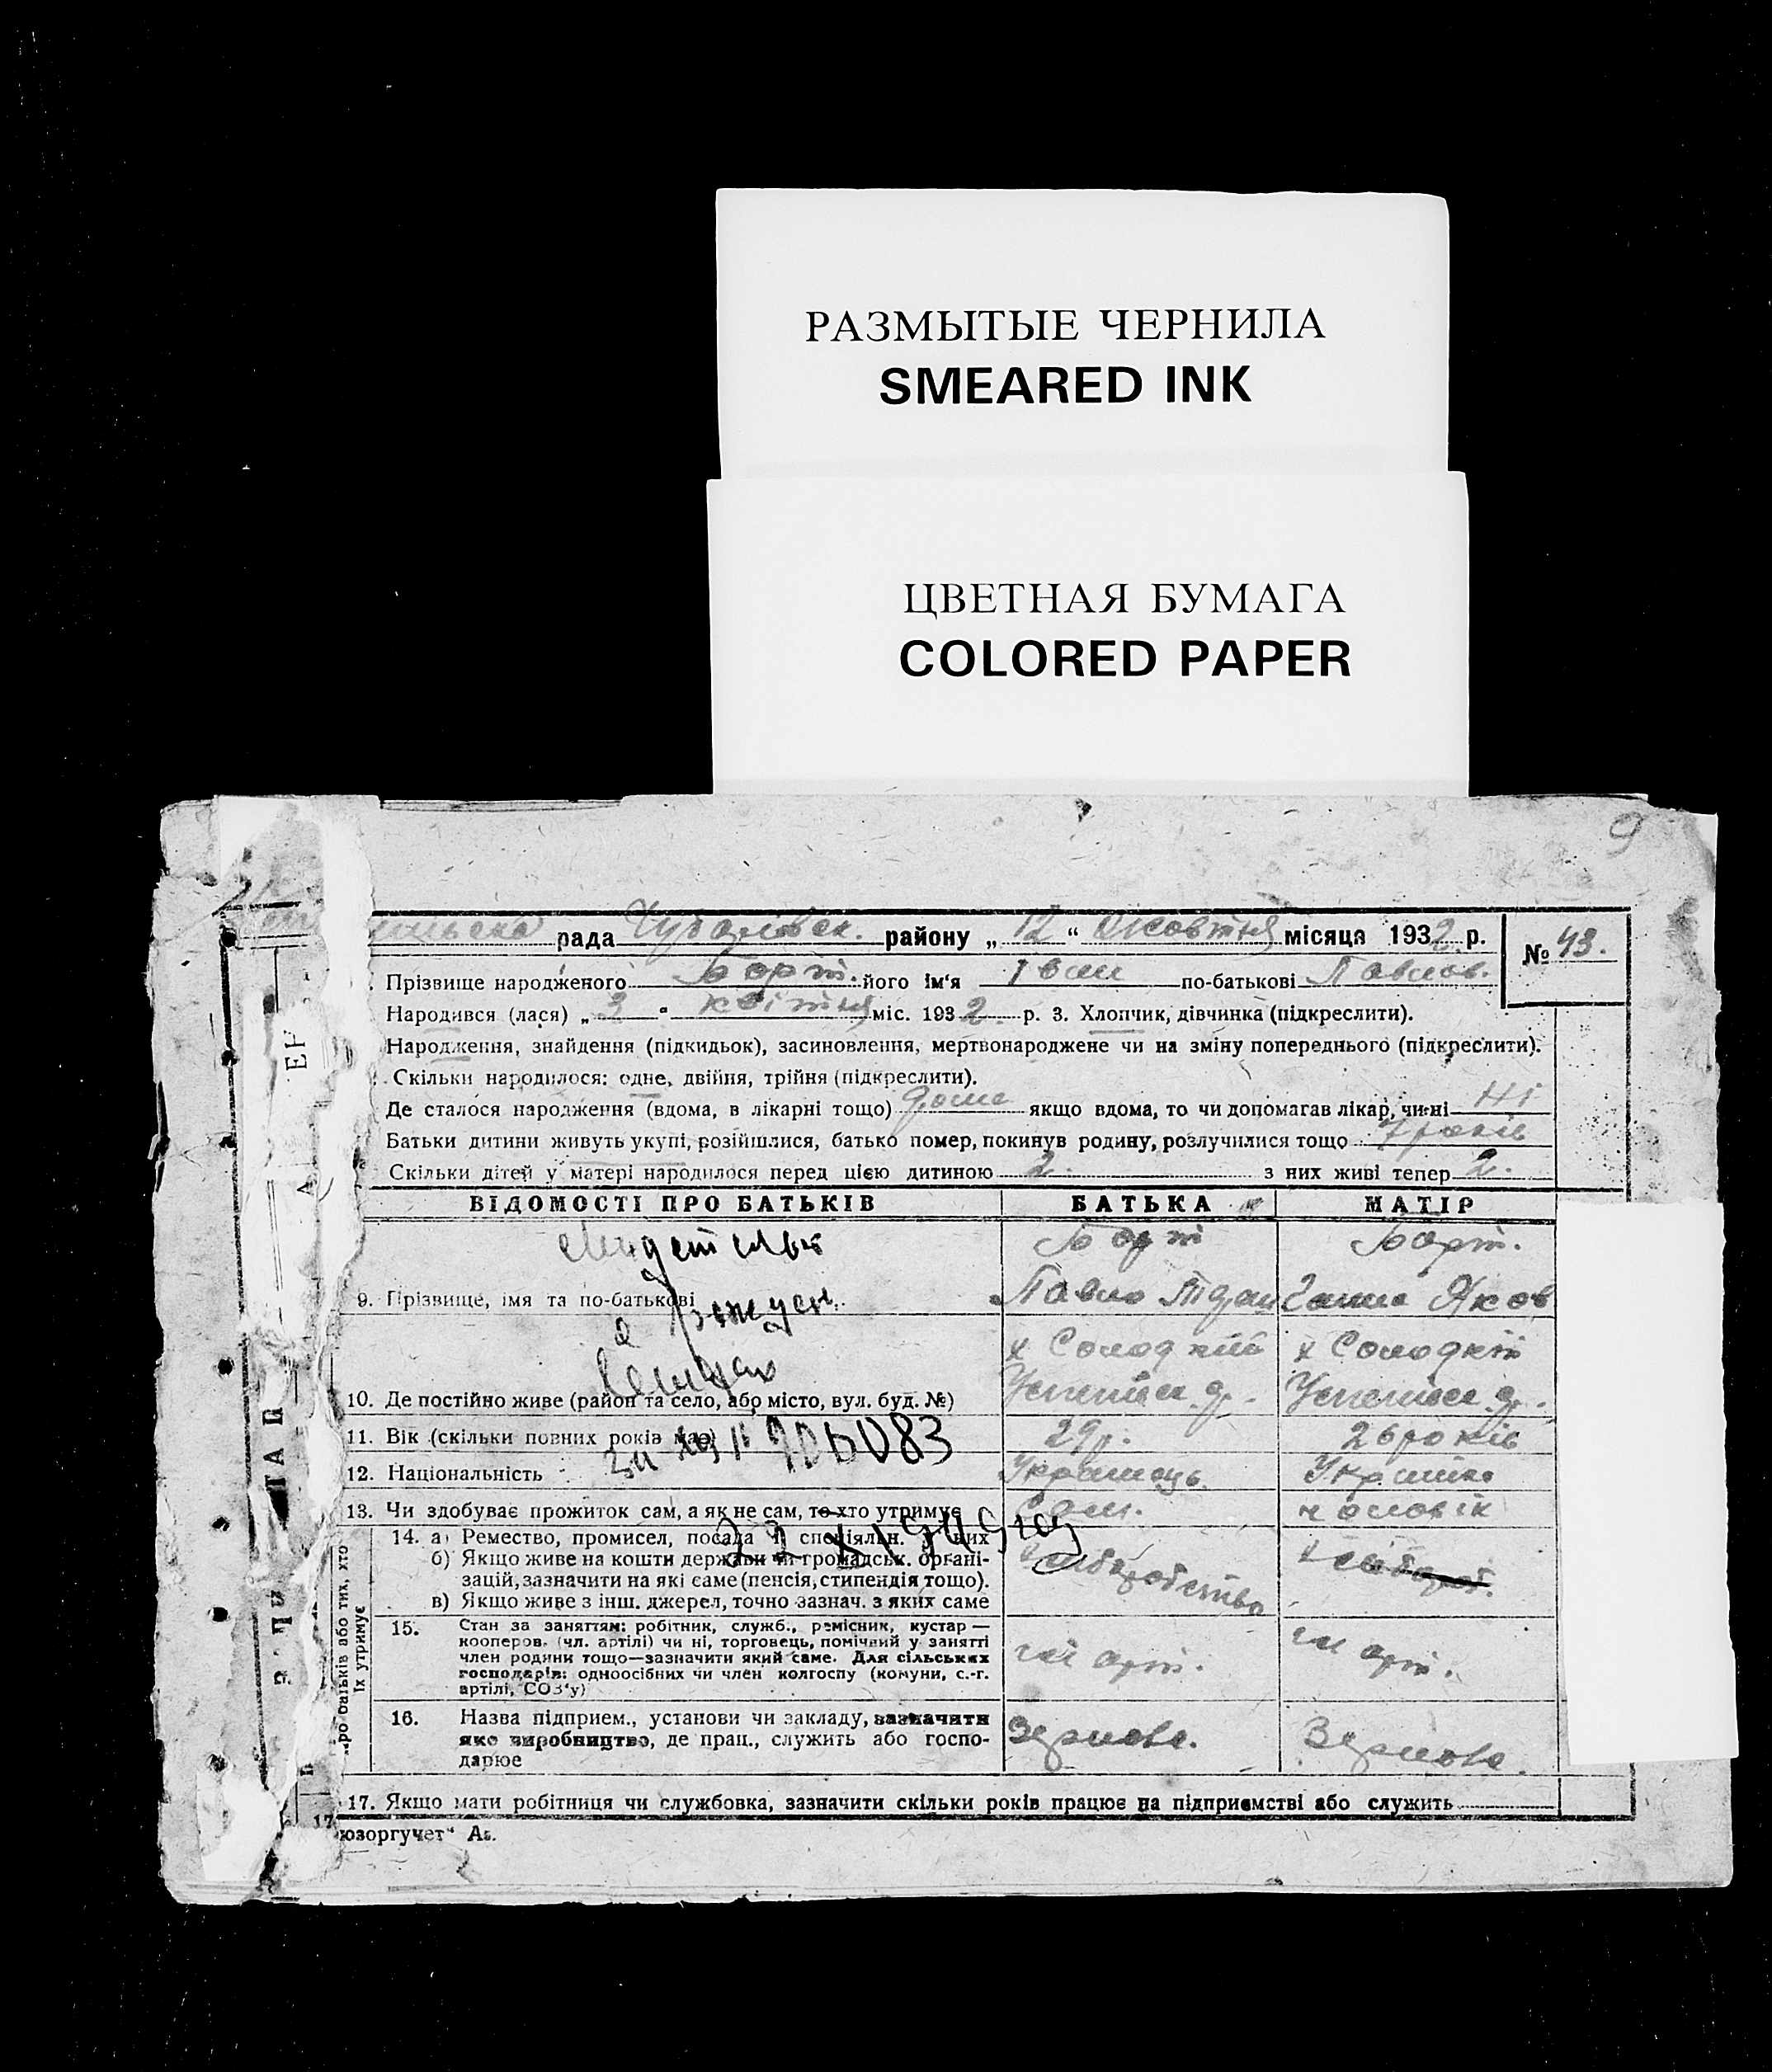 РАЗМЫТЫЕ ЧЕРНИЛА
SMEARED INK
ЦВЕТНАЯ БУМАГА
COLORED PAPER
9
рада Чубарівськ. району „12“ жовтня місяця 1932 р.
№ 43.
Прізвище народженого Борт. його ім‘я Іван по-батькові Павлов.
Народився (лася) „3“ квітня міс. 1932 р. 3. Хлопчик, дівчинка (підкреслити).
Народження, знайдення (підкидьок), засиновлення, мертвонароджене чи на зміну попереднього (підкреслити).
Скільки народилося: одне, двійня, трійня (підкреслити).
Де сталося народження (вдома, в лікарні тощо) дома якщо вдома, то чи допомагав лікар, чи ні Ні
Батьки дитини живуть укупі, розійшлися, батько помер, покинув родину, розлучилися тощо 7 років
Скільки дітей у матері народилося перед цією дитиною 2. з них живі тепер 2.
ВІДОМОСТІ ПРО БАТЬКІВ БАТЬКА МАТІР
Борт Борт.
9. Прізвище, імя та по-батькові Павло Ганна Яков
х Солодкий х Солодкий
10. Де постійно живе (район та село, або місто, вул. буд. №)
11. Вік (скільки повних років має) 29 р. 26 років
за № 906083
12. Національність Українець Україна
13. Чи здобуває прожиток сам, а як не сам, то хто утримує Сам. чоловік
22 XI 1949 год
14. а) Ремество, промисел, посада й спеціяльн. у них
б) Якщо живе на кошти держави чи громадськ. органі-
зацій, зазначити на які саме (пенсія, стипендія тощо).
в) Якщо живе з інш. джерел, точно зазнач. з яких саме
хліборобство
15. Стан за заняттям: робітник, служб., ремісник, кустар —
кооперов. (чл. артілі) чи ні, торговець, помічний у занятті
член родини тощо—зазначити який саме. Для сільських
господарів: одноосібних чи член колгоспу (комуни, с.-г.
артілі, СОЗ‘у)
чл арт. чл арт.
16. Назва підприєм., установи чи закладу, зазначити
яке виробництво, де прац., служить або госпо-
дарює
Зернове. Зернове.
17. Якщо мати робітниця чи службовка, зазначити скільки років працює на підприємстві або служить
юзоргучет“